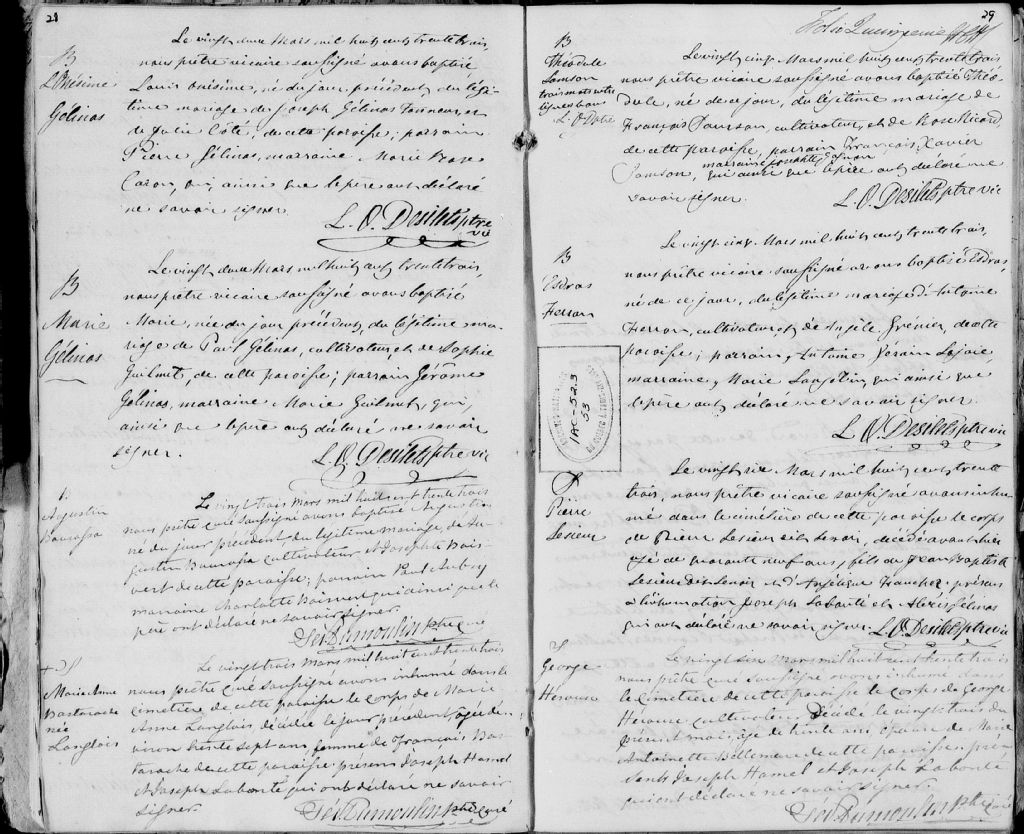 28
B
L. Onésime
Gélinas
Le vingt deux Mars mil huit cent trente trois,
nous prêtre vicaire soussigné avons baptisé,
Louis onésime, né du jour précédent du légi-
time mariage de Joseph Gélinas Tanneur, et
de Julie Côté, de cette paroisse; parrain
Pierre Gélinas, marraine Marie Rose
Caron, qui, ainsi que le père ont déclaré
ne savoir signer.
L. O. Desilets ptre
vic
B
Marie
Gélinas
Le vingt deux Mars mil huit cent trente trois,
nous prêtre vicaire soussigné avons baptisé
Marie, née du jour précédent, du légitime ma-
riage de Paul Gélinas, cultivateur, et de Sophie
Guilmet, de cette paroisse; parrain Jérôme
Gélinas, marraine Marie Guilmet, qui,
ainsi que le père ont déclaré ne savoir
signer.
L. O. Desilets ptre vic
B
Augustin
Le vingt trois mars mil huit cent trente trois
nous prêtre curé soussigné avons baptisé Augustin
né du jour précédent du légitime mariage de Au-
gustin cultivateur et Josephte Bois-
vert de cette paroisse; parrain Paul Aubry
marraine Charlotte Boisvert qui ainsi que le
père ont déclaré ne savoir signer.
Sév. Dumoulin ptre curé
S
Marie Anne
née
Langlois
Le vingt trois mars mil huit cent trente trois
nous prêtre curé soussigné avons inhumé dans le
cimetière de cette paroisse le corps de Marie
Anne Langlois, décédée le jour précédent, agée d'en-
viron trente sept ans, femme de François Bas-
tarache de cette paroisse présens Joseph Hamel
et Joseph Labonté qui ont déclaré ne savoir
signer.
Sév. Dumoulin ptre curé
29
Folio
B
Théodule
Samson
trois mots entre
lignes bons
L. O. D. ptre
Le vingt cinq Mars mil huit cent trente trois
nous prêtre vicaire soussigné avons baptisé Théo-
dule, né de ce jour, du légitime mariage de
François Samson, cultivateur, et de Rose Ricard
de cette paroisse, parrain François Xavier
marraine
Samson, qui ainsi que le père ont déclaré ne
savoir signer.
L. O. Desilets ptre vic
B
Esdras
Ferron
Le vingt cinq Mars mil huit cent trente trois,
nous prêtre vicaire soussigné avons baptisé Esdras,
né de ce jour, du légitime mariage d'Antoine
Ferron, cultivateur, et de Angèle Grénier, de cette
paroisse; parrain, Antoine Vérain Lajoie,
marraine, Marie qui ainsi que
le père ont déclaré ne savoir signer.
L. O. Desilets ptre vic
IAC-523
53
S
Pierre
Lesieur
Le vingt six Mars mil huit cent trente
trois, nous prêtre vicaire soussigné avons inhu-
mé dans le cimetière de cette paroisse le corps
de Pierre Lesieur dit Lenoir, décédé avant hier
agé de quarante neuf ans, fils de Jean Baptiste
Lesieur dit Lenoir et d'Angélique Faucher; présens
à l'inhumation Joseph Labonté et Alexis Gélinas
qui ont déclaré ne savoir signer. L. O. Desilets ptre vic
S
George
Héroux
Le vingt six mars mil huit cent trente trois
nous prêtre curé soussigné avons inhumé dans
le cimetière de cette paroisse le corps de George
Héroux, cultivateur, décédé le vingt trois du
présent mois, agé de trente ans, époux de Marie
Antoinette Bellemare de cette paroisse pré-
sents Joseph Hamel et Joseph Labonté
qui ont déclaré ne savoir signer.
Sév. Dumoulin ptre curé